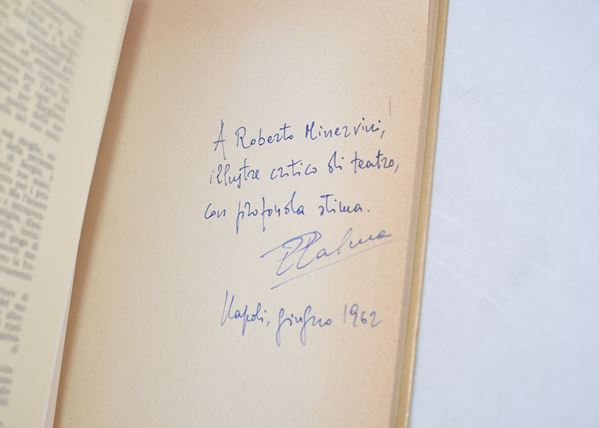 A Roberto Minervini,
illustre critico di teatro,
con profonda stima.
Napoli, giugno 1962